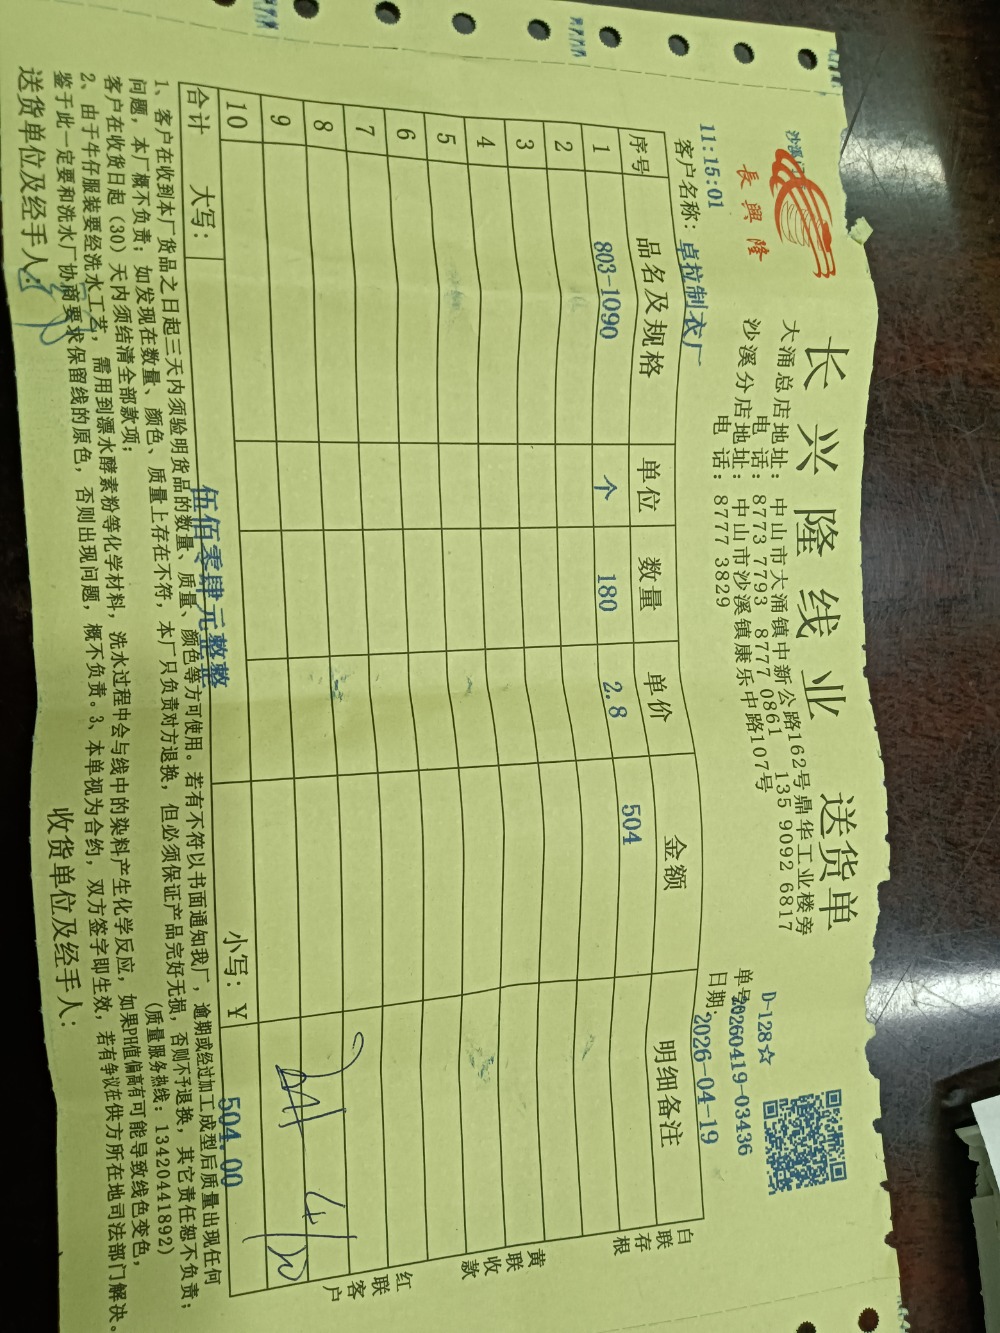 長興隆
长兴隆线业 送货单
大涌总店地址: 中山市大涌镇中新公路162号鼎华工业楼旁
电 话: 8773 7793 8777 0861 135 9092 6817
沙溪分店地址: 中山市沙溪镇康乐中路107号
电 话: 8777 3829
D-128☆
单号: 20260419-03436
日期: 2026-04-19
11:15:01
客户名称: 卓拉制衣厂
序号 品名及规格 单位 数量 单价 金额 明细备注
1 803-1090 个 180 2.8 504
2
3
4
5
6
7
8
9
10
合计 大写: 伍佰零肆元整整 小写: ¥ 504.00
白联存根
黄联收款
红联客户
1、客户在收到本厂货品之日起三天内须验明货品的数量、质量、颜色等方可使用。若有不符以书面通知我厂，逾期或经过加工成型后质量出现任何
问题，本厂概不负责；如发现在数量、颜色、质量上存在不符，本厂只负责对方退换，但必须保证产品完好无损，否则不予退换，其它责任恕不负责；
客户在收货日起（30）天内须结清全部款项； (质量服务热线: 13420441892)
2、由于牛仔服装要经洗水工艺，需用到漂水酵素粉等化学材料，洗水过程中会与线中的染料产生化学反应，如果PH值偏高有可能导致线色变色，
鉴于此一定要和洗水厂协商要求保留线的原色，否则出现问题，概不负责。3、本单视为合约，双方签字即生效，若有争议在供方所在地司法部门解决。
送货单位及经手人: 收货单位及经手人: